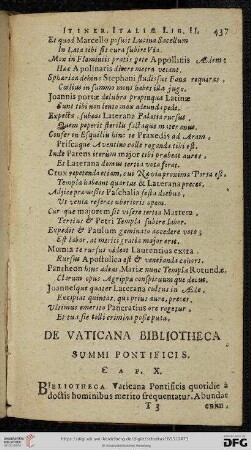 ITINER. ITALIÆ LIB. II. 437
Et quod Marcello posuit Lucina Sacellum
In Lata tibi sit cura subire Via.
Mox in Flaminiis pratis pete Appollinis Ædem:
Hac Apolinaris dicere metra vacent.
Stephani studiosus Fana requiras.
Cœlius in summo mons habet illa jugo.
Joannis portæ delubra propinqua Latinæ
Sunt tibi non lento mox adeunda pede.
Expecta subeas Laterana Palatia rursus,
Quem peperit sterili factaque mater anus.
Confer in Esquilias hinc te Praxedis ad Aram,
Priscaque Aventino colle roganda tibi est.
Inde Parens iterum major tibi præbeat aures,
Et Laterana domus tertia vota ferat.
Crux repetenda etiam, cui Nævia proxima Porta est:
Templa habeant quartas & Laterana preces.
Ut venia referas uberioris opem.
Cur quæ majorem se visere tertia Matrem
Tertius & Petri Templa subire labor.
Expedit & Paulum geminato accedere voto;
Est labor, at meriti gratia major erit.
Monia te rursus videat Laurentius extra:
Rursus Apostolica est & veneranda cohors.
Pantheon hinc adeas, Mariæ nunc Templa Rotundæ,
Clarum opus Agrippa conspicuum que decus.
Joannesque quater Laterana cultus in Æde,
Excipiat quintas, qua prius aure, preces.
Ultimus emerito Pancratius ore rogetur,
Et tua sic tolli crimina posse puta.
DE VATICANA BIBLIOTHECA
SUMMI PONTIFICIS.
CAP. X.
BIBLIOTHECA Vaticana Pontificis quotidie à
doctis hominibus merito frequentatur. Abundat
T 3